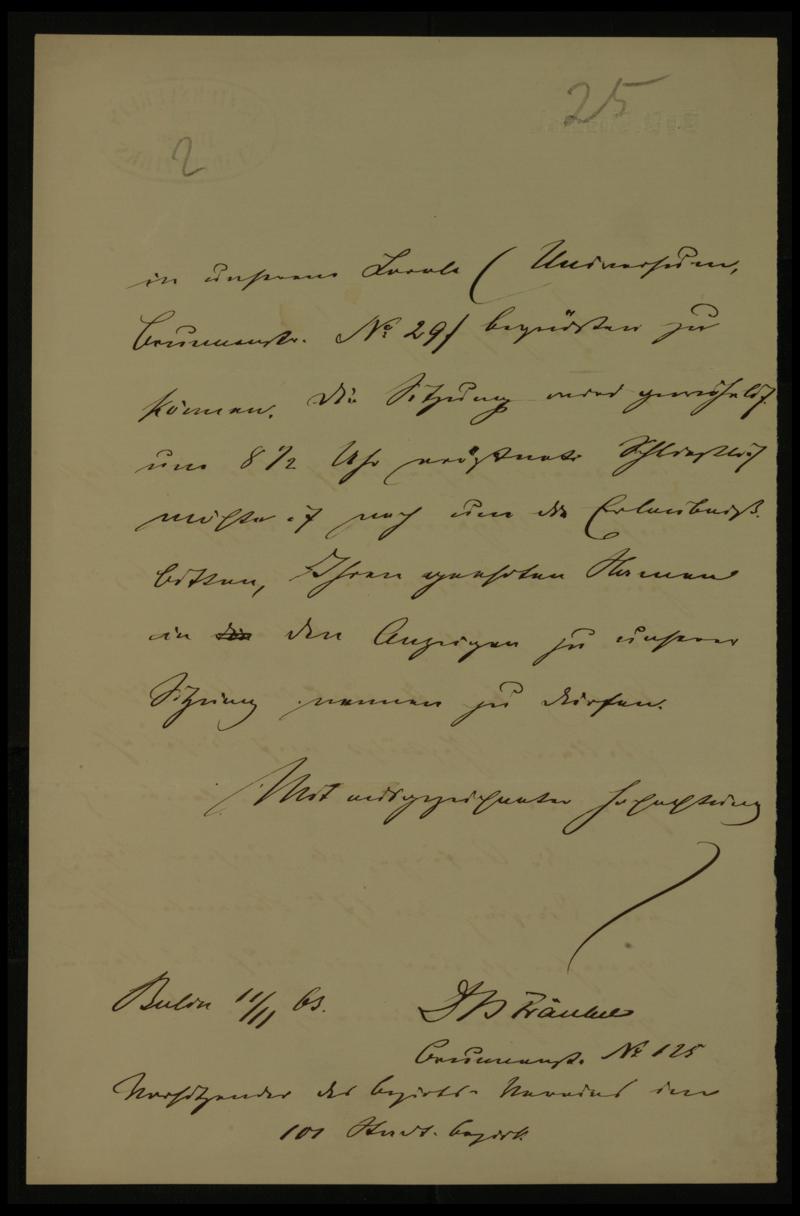 25
2
in unserem Locale (Universum,
Brunnenstr. No 29) begrüßen zu
können. Die Sitzung wird
um 8 1/2 Uhr eröffnet. Schließlich
möchte ich noch um die Erlaubniß
bitten, Ihren geehrten Namen
in die den Anzeigen zu unserer
Sitzung nennen zu dürfen.
Mit ausgezeichneter Hochachtung
Berlin 11/11 63. Dr B Fränkel
Brunnenst. No 125
Vorsitzender des Bezirks-Vereins im
101 Stadt-bezirk.